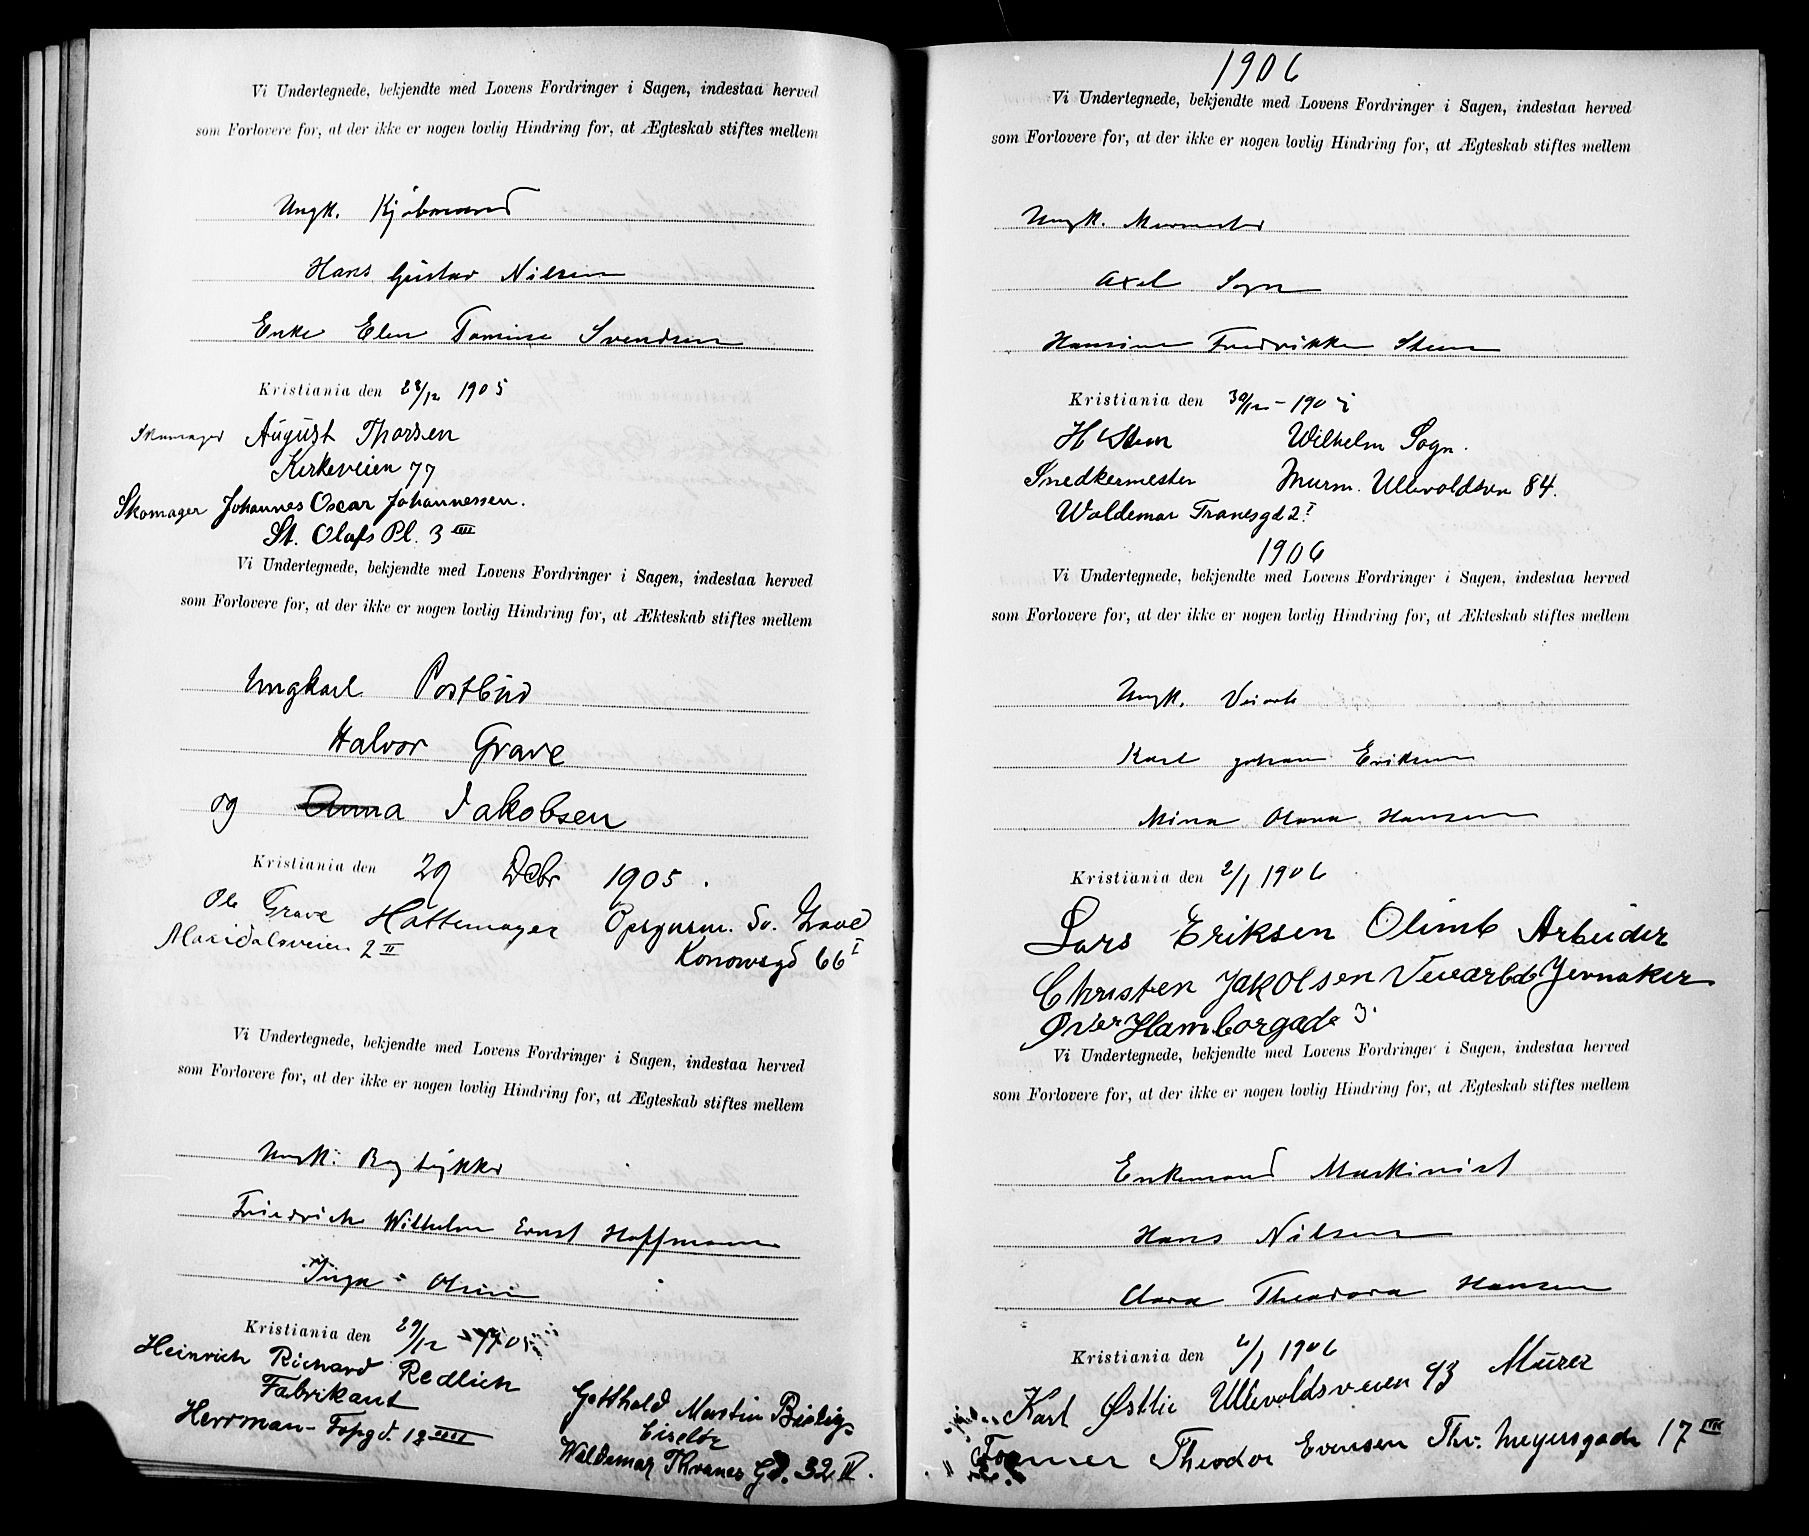 Vi Undertegnede, bekjendte med Lovens Fordringer i Sagen, indestaa herved
som Forlovere for, at der ikke er nogen lovlig Hindring for, at Ægteskab stiftes mellem
Ungk. Kjøbmand
Hans Gustav Nilsen
Enke Elen Tomine Svendsen
Kristiania den 28/12 1905
Skomager August Thorsen
Kirkeveien 77
Skomager Johannes Oscar Johannessen.
St. Olafs Pl. 3 IIII
Vi Undertegnede, bekjendte med Lovens Fordringer i Sagen, indestaa herved
som Forlovere for, at der ikke er nogen lovlig Hindring for, at Ækteskab stiftes mellem
Ungkarl Postbud
Halvor Grave
og Anna Jakobsen
Kristiania den 29 Debr 1905.
Ole Grave Hattemager Opsynsm. Sv. Grave
Maridalsveien 2 II Konowsgd 66 I
Vi Undertegnede, bekjendte med Lovens Fordringer i Sagen, indestaa herved
som Forlovere for, at der ikke er nogen lovlig Hindring for, at Ægteskab stiftes mellem
Ungk. Bogtrykker
Friedrich Wilhelm Ernst Hoffmann
Inga Olsen
Kristiania den 29/12 1905
Heinrich Richard Redlich
Fabrikant
Herrman-Fopgd. 18 IIII
Gotthold Martin
Ciselør
Waldemar Thranes Gd. 32 IV.
1906
Vi Undertegnede, bekjendte med Lovens Fordringer i Sagen, indestaa herved
som Forlovere for, at der ikke er nogen lovlig Hindring for, at Ægteskab stiftes mellem
Ungk. Murmester
Axel Sogn
Hansine Fredrikke Steen
Kristiania den 30/12 - 1905
H Steen Wilhelm Sogn.
Snedkermester Murm. Ullevoldsvn 84.
Waldemar Tranesgd 2 I
1906
Vi Undertegnede, bekjendte med Lovens Fordringer i Sagen, indestaa herved
som Forlovere for, at der ikke er nogen lovlig Hindring for, at Ækteskab stiftes mellem
Ungk. Veiarb
Karl Johan Eriksen
Mina Olava Hansen
Kristiania den 2/1 1906
Lars Eriksen Olimb Arbeider
Christen Jakolsen Veiarbd Jevnaker
Øver Hamborgade 3.
Vi Undertegnede, bekjendte med Lovens Fordringer i Sagen, indestaa herved
som Forlovere for, at der ikke er nogen lovlig Hindring for, at Ægteskab stiftes mellem
Enkemand Maskinist
Hans Nilsen
Clara Theodora Hansen
Kristiania den 2/1 1906
Karl Østlie Ullevoldsveien 93 Murer
Former Theodor Evensen Thv. Meyersgade 17 III